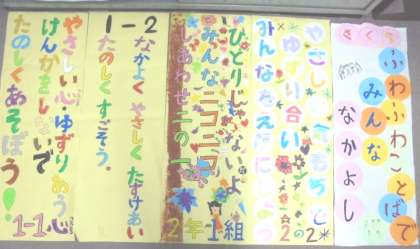 さくら
ふわふわことばで
みんな
なかよし
やさし もちと
ゆずり合い
みんなえがに
2の2
ひとりじゃないよ
みんなニコニコ
しあわせ二の一
2年1組
1-2
なかよく やさしく たすけあい
たのしく すごそう。
やさしい心ゆずりあう心
けんかをしないで
たのしくあそぼう!
1-1